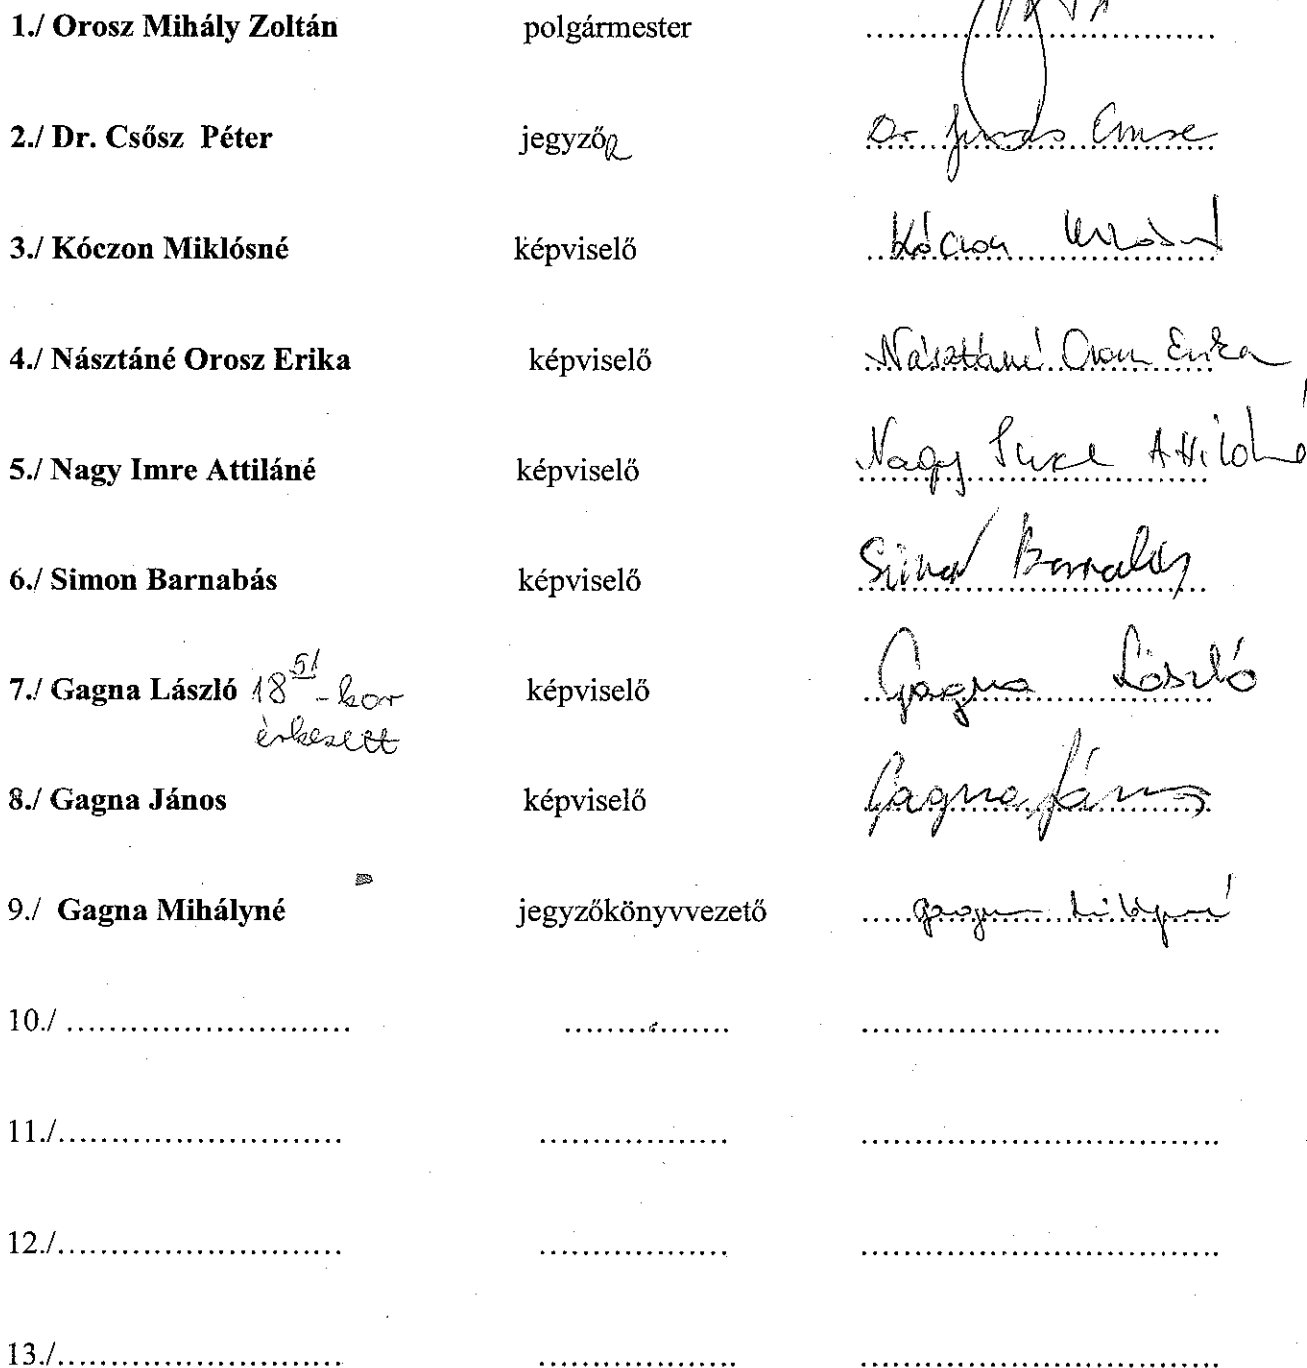 1./ Orosz Mihály Zoltán polgármester ........................................
2./ Dr. Csősz Péter jegyző Dr. Emese
3./ Kóczon Miklósné képviselő Kóczon Miklósné
4./ Násztáné Orosz Erika képviselő Násztáné Orosz Erika
5./ Nagy Imre Attiláné képviselő Nagy Imre Attiláné
6./ Simon Barnabás képviselő Simon Barnabás
7./ Gagna László 18 51 -kor képviselő Gagna László
érkezett
8./ Gagna János képviselő Gagna János
9./ Gagna Mihályné jegyzőkönyvvezető Gagna Mihályné
10./ ........................... ................ ..................................
11./........................... .................. ..................................
12./........................... .................. ..................................
13./........................... ................... ..................................